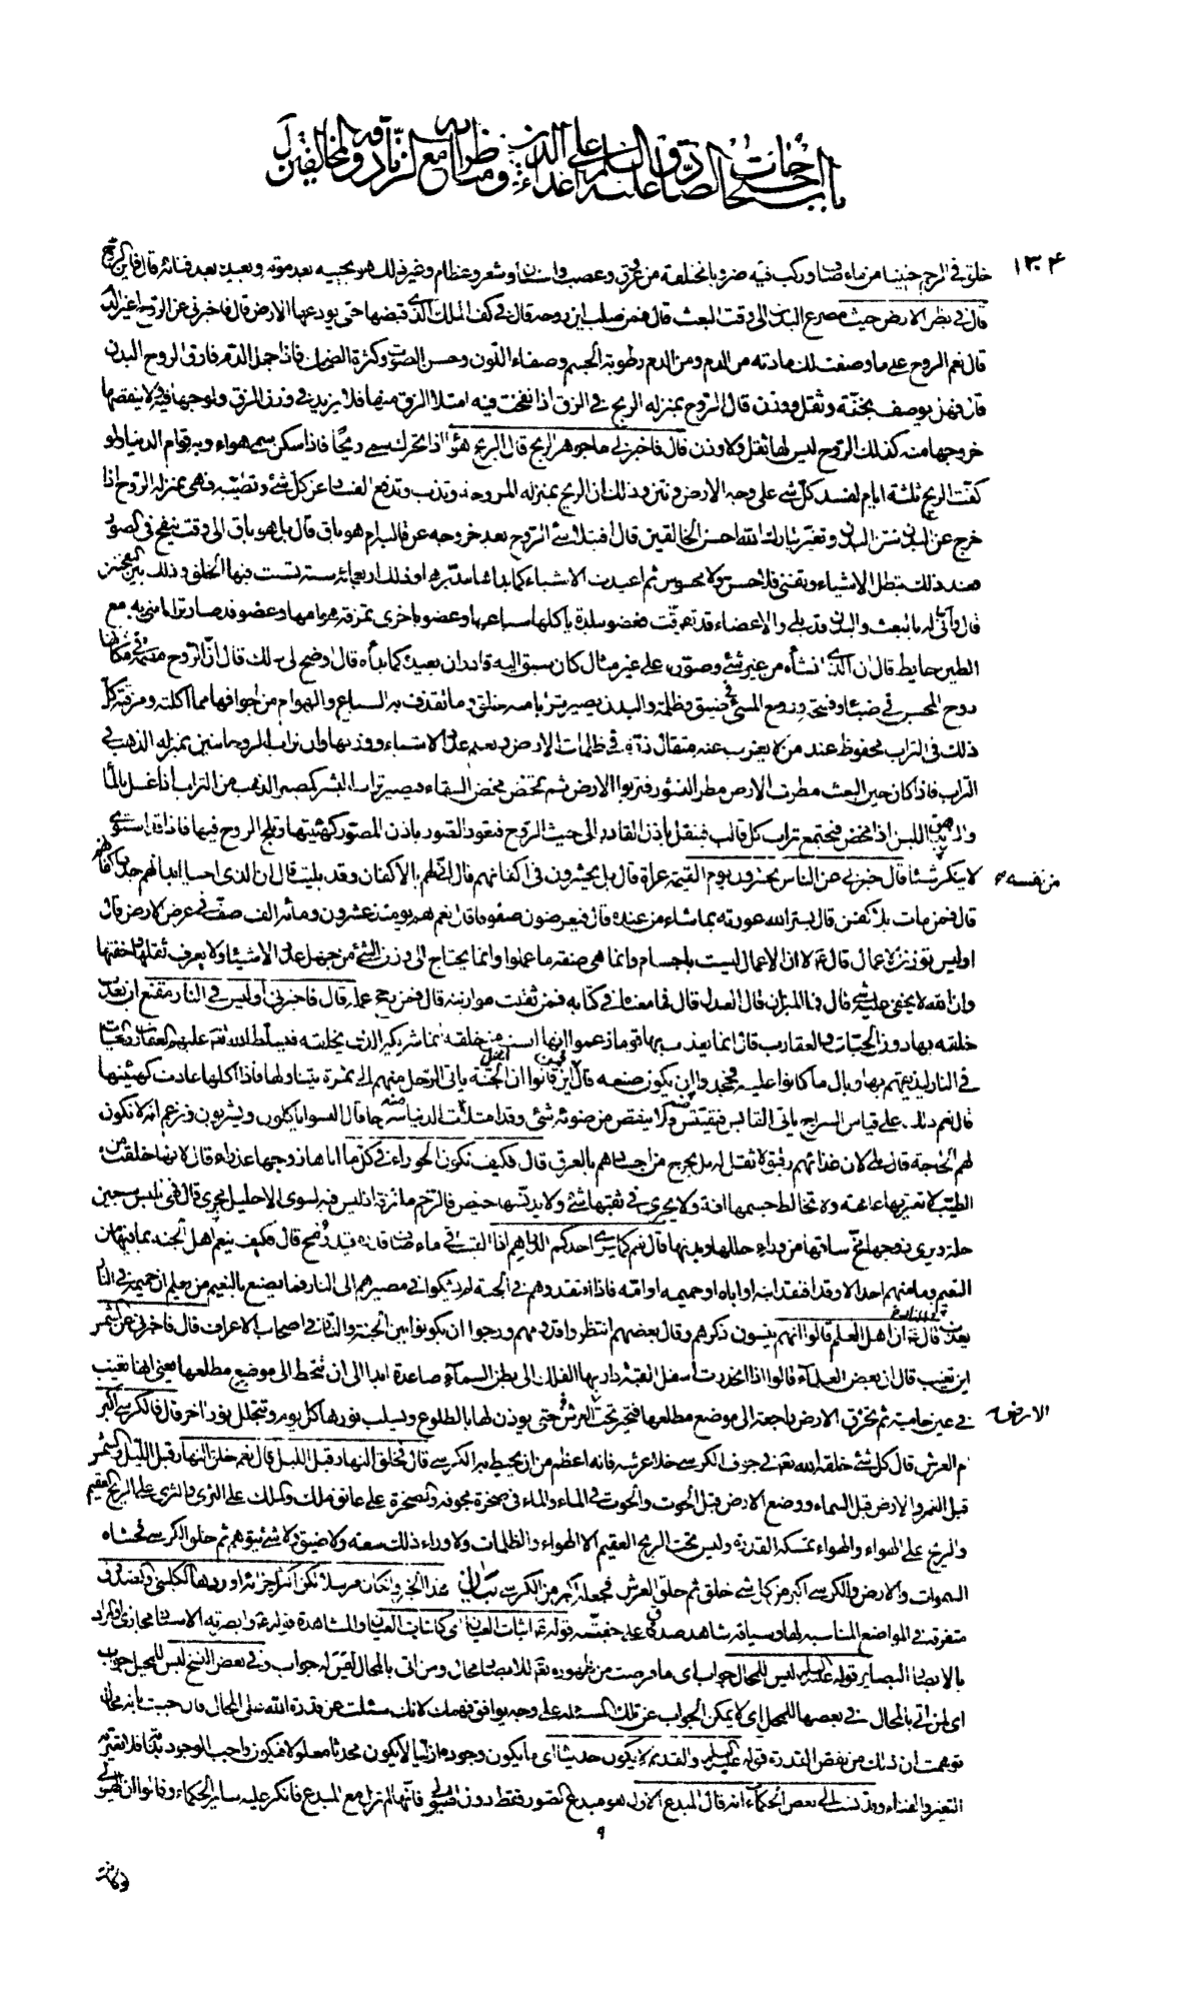 باب احتجاجات الصادق صلوات الله عليه على الزنادقة والمخالفين ومناظراته معهم
١٣٤
خلق في الرحم جنينا من ماء صاف وركب فيه ضروبا مختلفة من عروق وعصب واسنان وشعر وعظام وغير ذلك هو يحييه بعد موته ويعيده بعد فنائه قال فاين الروح
قال في بطن الارض حيث مصرع البدن الى وقت البعث قال فمن صلب اين روحه قال في كف الملك الذي قبضها حتى يودعها الارض قال فاخبرني عن الروح اغير الدم
قال نعم الروح على ما وصفت لك مادته من الدم ومن الدم رطوبة الجسم وصفاء اللون وحسن الصوت وكثرة الضحك فاذا جمد الدم فارق الروح البدن
قال فهل يوصف بخفة وثقل ووزن قال الروح بمنزلة الريح في الزق اذا نفخت فيه امتلأ الزق منها فلا يزيد في وزن الزق ولوجها فيه ولا ينقصها
خروجها منه كذلك الروح ليس لها ثقل ولا وزن قال فاخبرني ما جوهر الريح قال الريح هواء اذا تحرك يسمى ريحا فاذا سكن يسمى هواء وبه قوام الدنيا ولو
كفت الريح ثلثة ايام لفسد كل شئ على وجه الارض ونتن وذلك ان الريح بمنزلة المروحة تذب وتدفع الفساد عن كل شئ وتطيبه فهي بمنزلة الروح اذا
خرج عن البدن نتن البدن وتغير تبارك الله احسن الخالقين قال افيتلاشى الروح بعد خروجه عن قالبه ام هو باق قال بل هو باق الى وقت ينفخ في الصور
فعند ذلك تبطل الاشياء وتفنى فلا حس ولا محسوس ثم اعيدت الاشياء كما بداها مدبرها وذلك اربعمائة سنة تسبت فيها الخلق وذلك بين النفختين
قال وانى له بالبعث والبدن قد بلي والاعضاء قد تفرقت فعضو ببلدة ياكلها سباعها وعضو باخرى تمزقه هوامها وعضو قد صار ترابا بني به مع
الطين حايط قال ان الذي انشأه من غير شئ وصوره على غير مثال كان سبق اليه قادر ان يعيده كما بدأه قال اوضح لي ذلك قال ان الروح مقيمة في مكانها
روح المحسن في ضياء وفسحة وروح المسئ في ضيق وظلمة والبدن يصير ترابا كما منه خلق وما تقذف به السباع والهوام من اجوافها مما اكلته ومزقته كل
ذلك في التراب محفوظ عند من لا يعزب عنه مثقال ذرة في ظلمات الارض ويعلم عدد الاشياء ووزنها وان تراب الروحانيين بمنزلة الذهب في
التراب فاذا كان حين البعث مطرت الارض مطر النشور فتربوا الارض ثم تمخض مخض السقاء فيصير تراب البشر كمصير الذهب من التراب اذا غسل بالماء
والزبد من اللبن اذا مخض فيجتمع تراب كل قالب فينقل باذن القادر الى حيث الروح فتعود الصور باذن المصور كهيئتها وتلج الروح فيها فاذا قد استوى
لا ينكر من نفسه شيئا قال فاخبرني عن الناس يحشرون يوم القيمة عراة قال بل يحشرون في اكفانهم قال انى لهم بالاكفان وقد بليت قال ان الذي احيا ابدانهم جدد اكفانهم
قال فمن مات بلا كفن قال يستر الله عورته بما شاء من عنده قال فيعرضون صفوفا قال نعم هم يومئذ عشرون ومائة الف صف في عرض الارض قال
اوليس توزن الاعمال قال ع لا ان الاعمال ليست باجسام وانما هي صفة ما عملوا وانما يحتاج الى وزن الشئ من جهل عدد الاشياء ولا يعرف ثقلها وخفتها
وان الله لا يخفى عليه شئ قال فما الميزان قال العدل قال فما معناه في كتابه فمن ثقلت موازينه قال فمن رجح عمله قال فاخبرني اوليس في النار مقنع ان يعذب
خلقه بها دون الحيات والعقارب قال انما يعذب بها قوما زعموا انها ليست من خلقه انما شريكه الذي يخلقه فيسلط الله تعالى عليهم العقارب والحيات
في النار ليذيقهم بها وبال ما كانوا عليه فجحدوا ان يكون صنعه قال فمن اين قالوا ان اهل الجنة ياتي الرجل منهم الى ثمرة يتناولها فاذا اكلها عادت كهيئتها
قال نعم ذلك على قياس السراج ياتي القابس فيقتبس منه فلا ينقص من ضوئه شئ وقد امتلأت الدنيا منه سرجا قال اليسوا ياكلون ويشربون وتزعم انه لا تكون
لهم الحاجة قال بلى لان غذائهم رقيق لا ثقل له بل يخرج من اجسادهم بالعرق قال فكيف تكون الحوراء في كل ما اتاها زوجها عذراء قال لانها خلقت من
الطيب لا تعتريها عاهة ولا تخالط جسمها افة ولا يجري في ثقبها شئ ولا يدنسها حيض فالرحم ملتزقة اذ ليس فيه لسوى الاحليل مجرى قال فهي تلبس سبعين
حلة ويرى زوجها مخ ساقها من وراء حللها وبدنها قال نعم كما يرى احدكم الدراهم اذا القيت في ماء صاف قدره قيد رمح قال فكيف ينعم اهل الجنة بما فيها من
النعيم وما منهم احد الا وقد افتقد ابنه او اباه او حميمه او امه فاذا افتقدوهم في الجنة لم يشكوا في مصيرهم الى النار فما يصنع بالنعيم من يعلم ان حميمه في النار
يعذب قال ع ان اهل العلم قالوا انهم ينسون ذكرهم وقال بعضهم انتظروا قدومهم ورجوا ان يكونوا بين الجنة والنار في اصحاب الاعراف قال فاخبرني عن الشمس
اين تغيب قال ان بعض العلماء قالوا اذا انحدرت اسفل القبة دار بها الفلك الى بطن السماء صاعدة ابدا الى ان تنحط الى موضع مطلعها يعني انها تغيب
في عين حامية ثم تخرق الارض راجعة الى موضع مطلعها فتحير تحت العرش حتى يوذن لها بالطلوع ويسلب نورها كل يوم وتجلل نورا اخر قال فالكرسي اكبر
ام العرش قال كل شئ خلقه الله تعالى في جوف الكرسي خلا عرشه فانه اعظم من ان يحيط به الكرسي قال فخلق النهار قبل الليل قال نعم خلق النهار قبل الليل والشمس
قبل القمر والارض قبل السماء ووضع الارض على الحوت والحوت في الماء والماء في صخرة مجوفة والصخرة على عاتق ملك والملك على الثرى والثرى على الريح العقيم
والريح على الهواء والهواء تمسكه القدرة وليس تحت الريح العقيم الا الهواء والظلمات ولا وراء ذلك سعة ولا ضيق ولا شئ يتوهم ثم خلق الكرسي فحشاه
السموات والارض والكرسي اكبر من كل شئ خلق ثم خلق العرش فجعله اكبر من الكرسي بيان هذا الخبر وان كان مرسلا لكن اكثر اجزائه اوردها الكليني والصدوق
متفرقة في المواضع المناسبة لها وسياقه شاهد صدق على حقيته قوله ع اثبات العيان اي كاثبات العيان والمشاهدة قوله ع وابصرته الاسناد مجازي والمراد
بالابصار البصاير قوله عليه السلم ليس للمحال جواب اي ما فرضت من ظهوره تعالى للابصار محال ومن اتى بالمحال ليس له جواب وفي بعض النسخ ليس للمحيل جواب
اي لمن اتى بالمحال في بعضها للمحل اي لا يمكن الجواب عن تلك المسئلة على وجه يوافق فهمك لانك سئلت عن قدرة الله على المحال فان اجبت بانه محال
توهمت ان ذلك من نقص القدرة قوله عليه السلم والقديم لا يكون حديثا اي ما يكون وجوده ازليا لا يكون محدثا معلولا فيكون واجب الوجود بذاته فلا يعتريه
التغير والفناء وقد نسب الى بعض الحكماء انه قال المبدع الاول هو مبدع الصور فقط دون الهيولى فانها لم تزل مع المبدع فانكر عليه سائر الحكماء وقالوا ان الهيولى
٩
من نفسه
الارض